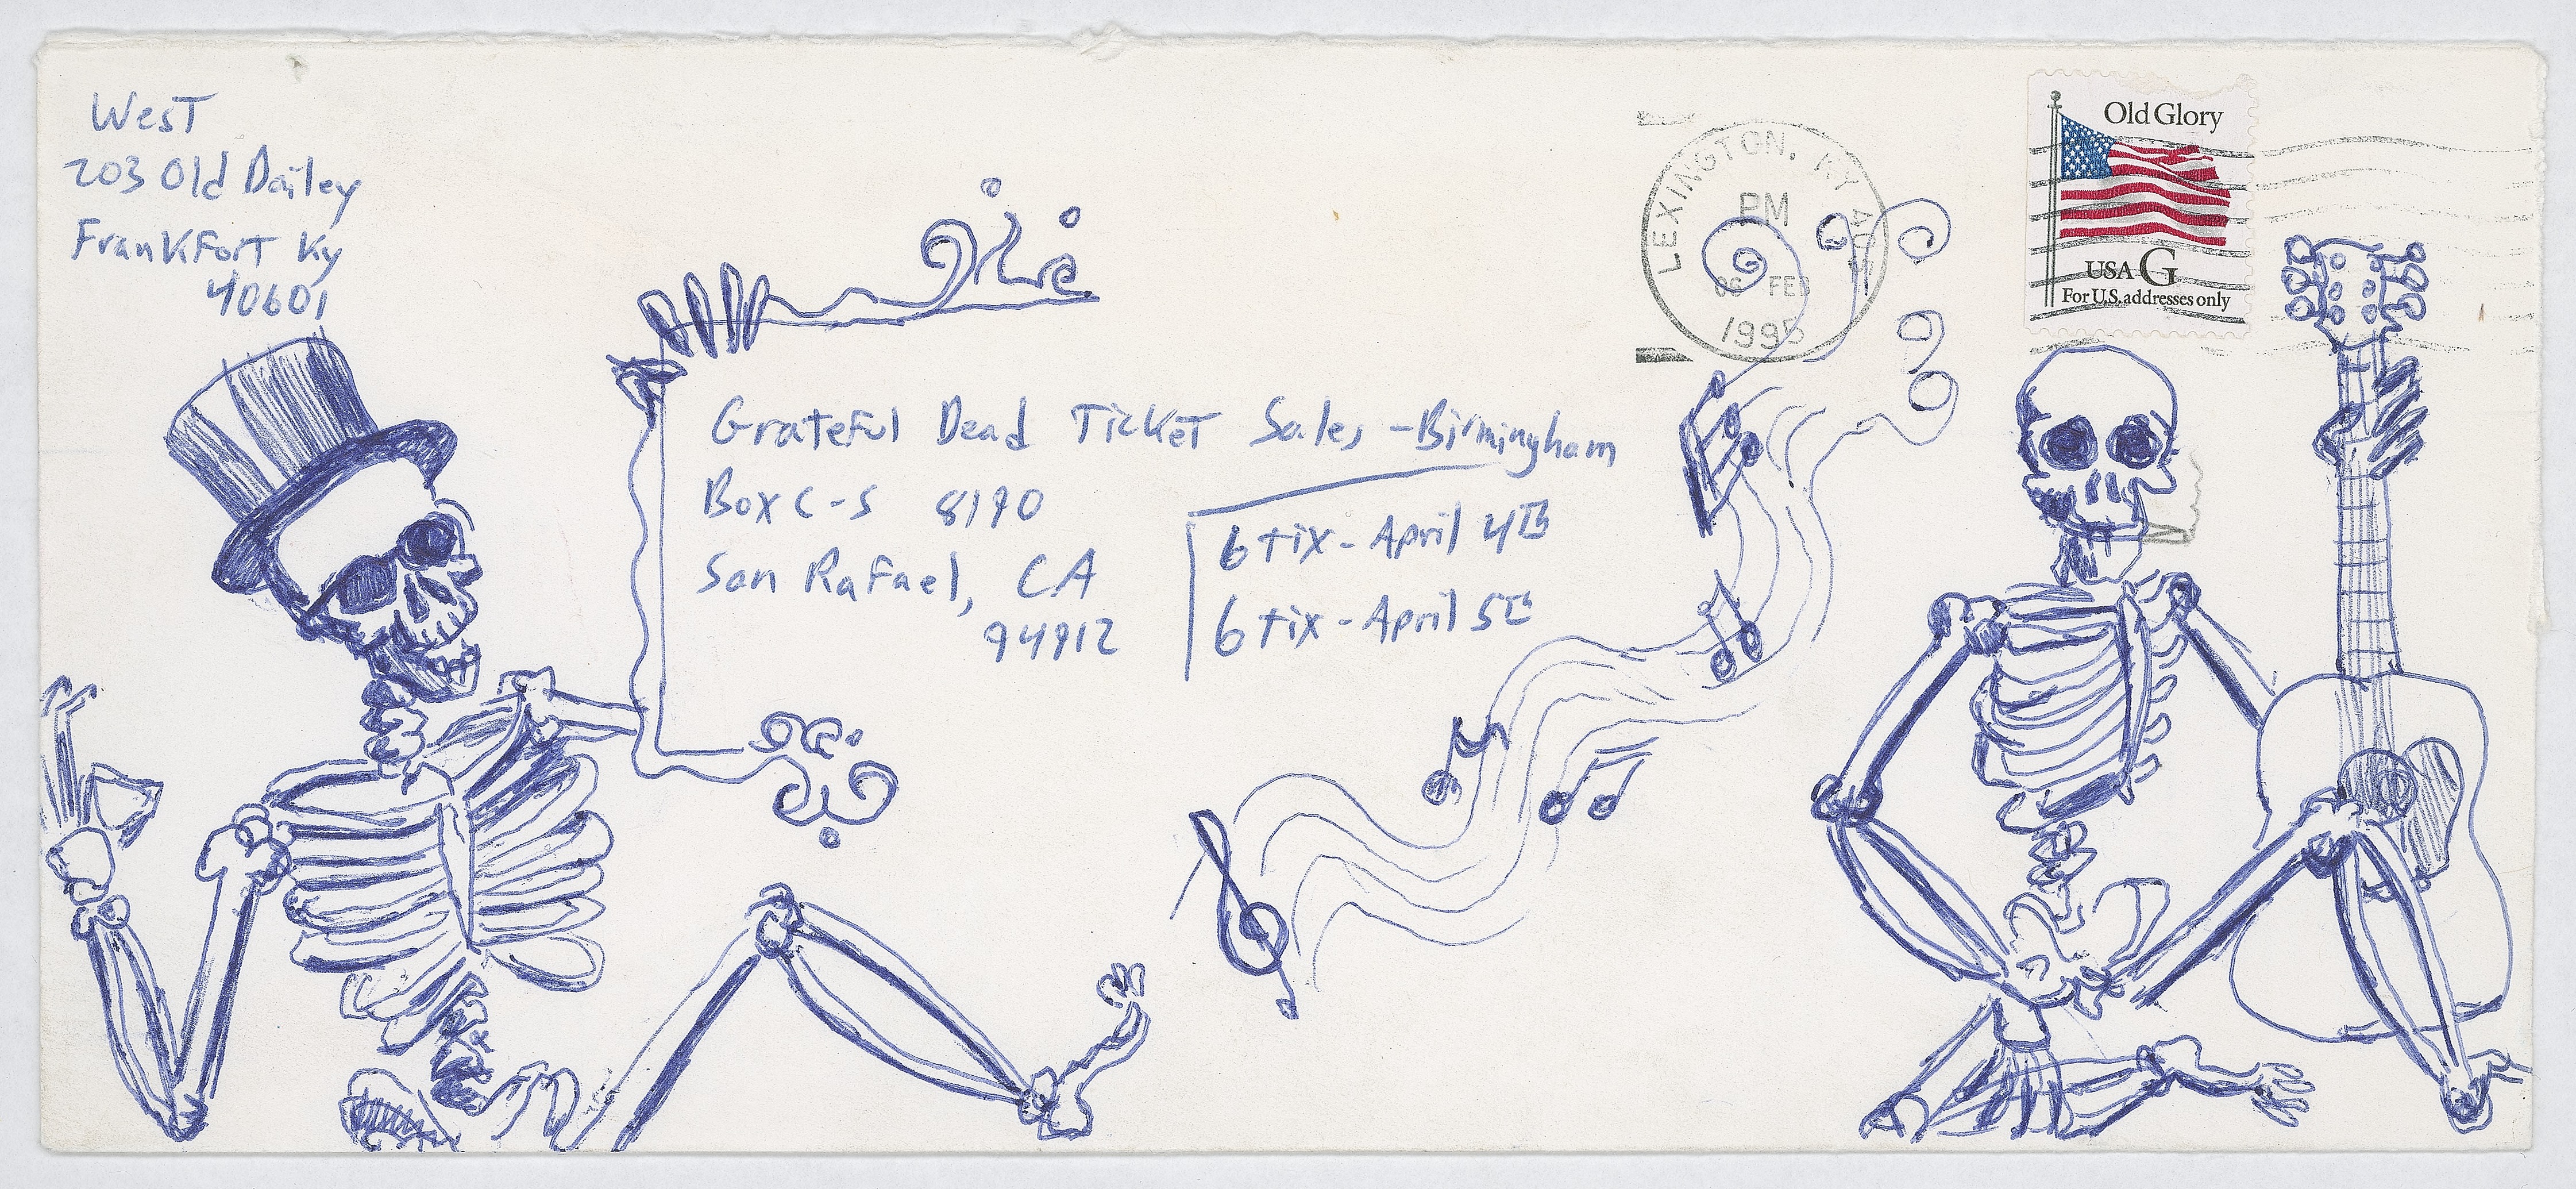 West
203 Old Dailey
Frankfort Ky
40601
LEXINGTON, KY 405
PM
06 FEB
1995
Old Glory
USA G
For U.S. addresses only
Grateful Dead Ticket Sales - Birmingham
Box C-S 8190
San Rafael, CA
94912
6 tix - April 4th
6 tix - April 5th